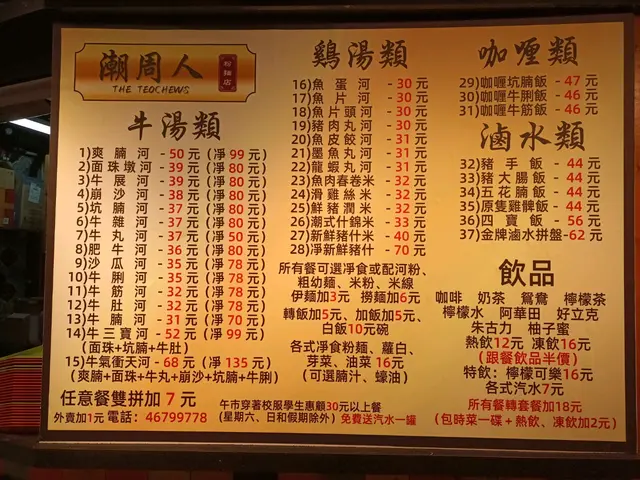 潮周人
粉麵店
THE TEOCHEWS
牛湯類
1)爽腩河 - 50元 (凈 99 元)
2)面珠墩河 - 39元 (凈 80 元)
3)牛展河 - 39元 (凈 80 元)
4)崩沙河 - 38元 (凈 80 元)
5)坑腩河 - 37元 (凈 80 元)
6)牛雜河 - 37元 (凈 80 元)
7)牛丸河 - 37元 (凈 50 元)
8)肥牛河 - 36元 (凈 80 元)
9)沙瓜河 - 35元 (凈 78 元)
10)牛脷河 - 35元 (凈 78 元)
11)牛筋河 - 32元 (凈 78 元)
12)牛肚河 - 32元 (凈 78 元)
13)牛腩河 - 31元 (凈 70 元)
14)牛三寶河 - 52元 (凈 99 元)
(面珠+坑腩+牛肚)
15)牛氣衝天河 - 68元 (凈 135 元)
(爽腩+面珠+牛丸+崩沙+坑腩+牛脷)
任意餐雙拼加 7 元
外賣加1元 電話：46799778
鷄湯類
16)魚蛋河 - 30元
17)魚片河 - 30元
18)魚片頭河 - 30元
19)豬肉丸河 - 30元
20)魚皮餃河 - 31元
21)墨魚丸河 - 31元
22)龍蝦丸河 - 31元
23)魚肉春卷米 - 32元
24)滑雞絲米 - 32元
25)鮮豬潤米 - 32元
26)潮式什錦米 - 33元
27)新鮮豬什米 - 40元
28)凈新鮮豬什 - 70元
所有餐可選凈食或配河粉、
粗幼麵、米粉、米線
伊麵加3元 撈麵加6元
轉飯加5元、加飯加5元、
白飯10元碗
各式凈食粉麵、蘿白、
芽菜、油菜 16元
(可選腩汁、蠔油)
午市穿著校服學生惠顧30元以上餐
(星期六、日和假期除外) 免費送汽水一罐
咖喱類
29)咖喱坑腩飯 - 47 元
30)咖喱牛脷飯 - 46 元
31)咖喱牛筋飯 - 46 元
滷水類
32)豬手飯 - 44 元
33)豬大腸飯 - 44 元
34)五花腩飯 - 44 元
35)原隻雞髀飯 - 44 元
36)四寶飯 - 56 元
37)金牌滷水拼盤-62 元
飲品
咖啡 奶茶 鴛鴦 檸檬茶
檸檬水 阿華田 好立克
朱古力 柚子蜜
熱飲12元 凍飲16元
(跟餐飲品半價)
特飲：檸檬可樂16元
各式汽水7元
所有餐轉套餐加18元
(包時菜一碟+熱飲、凍飲加2元)